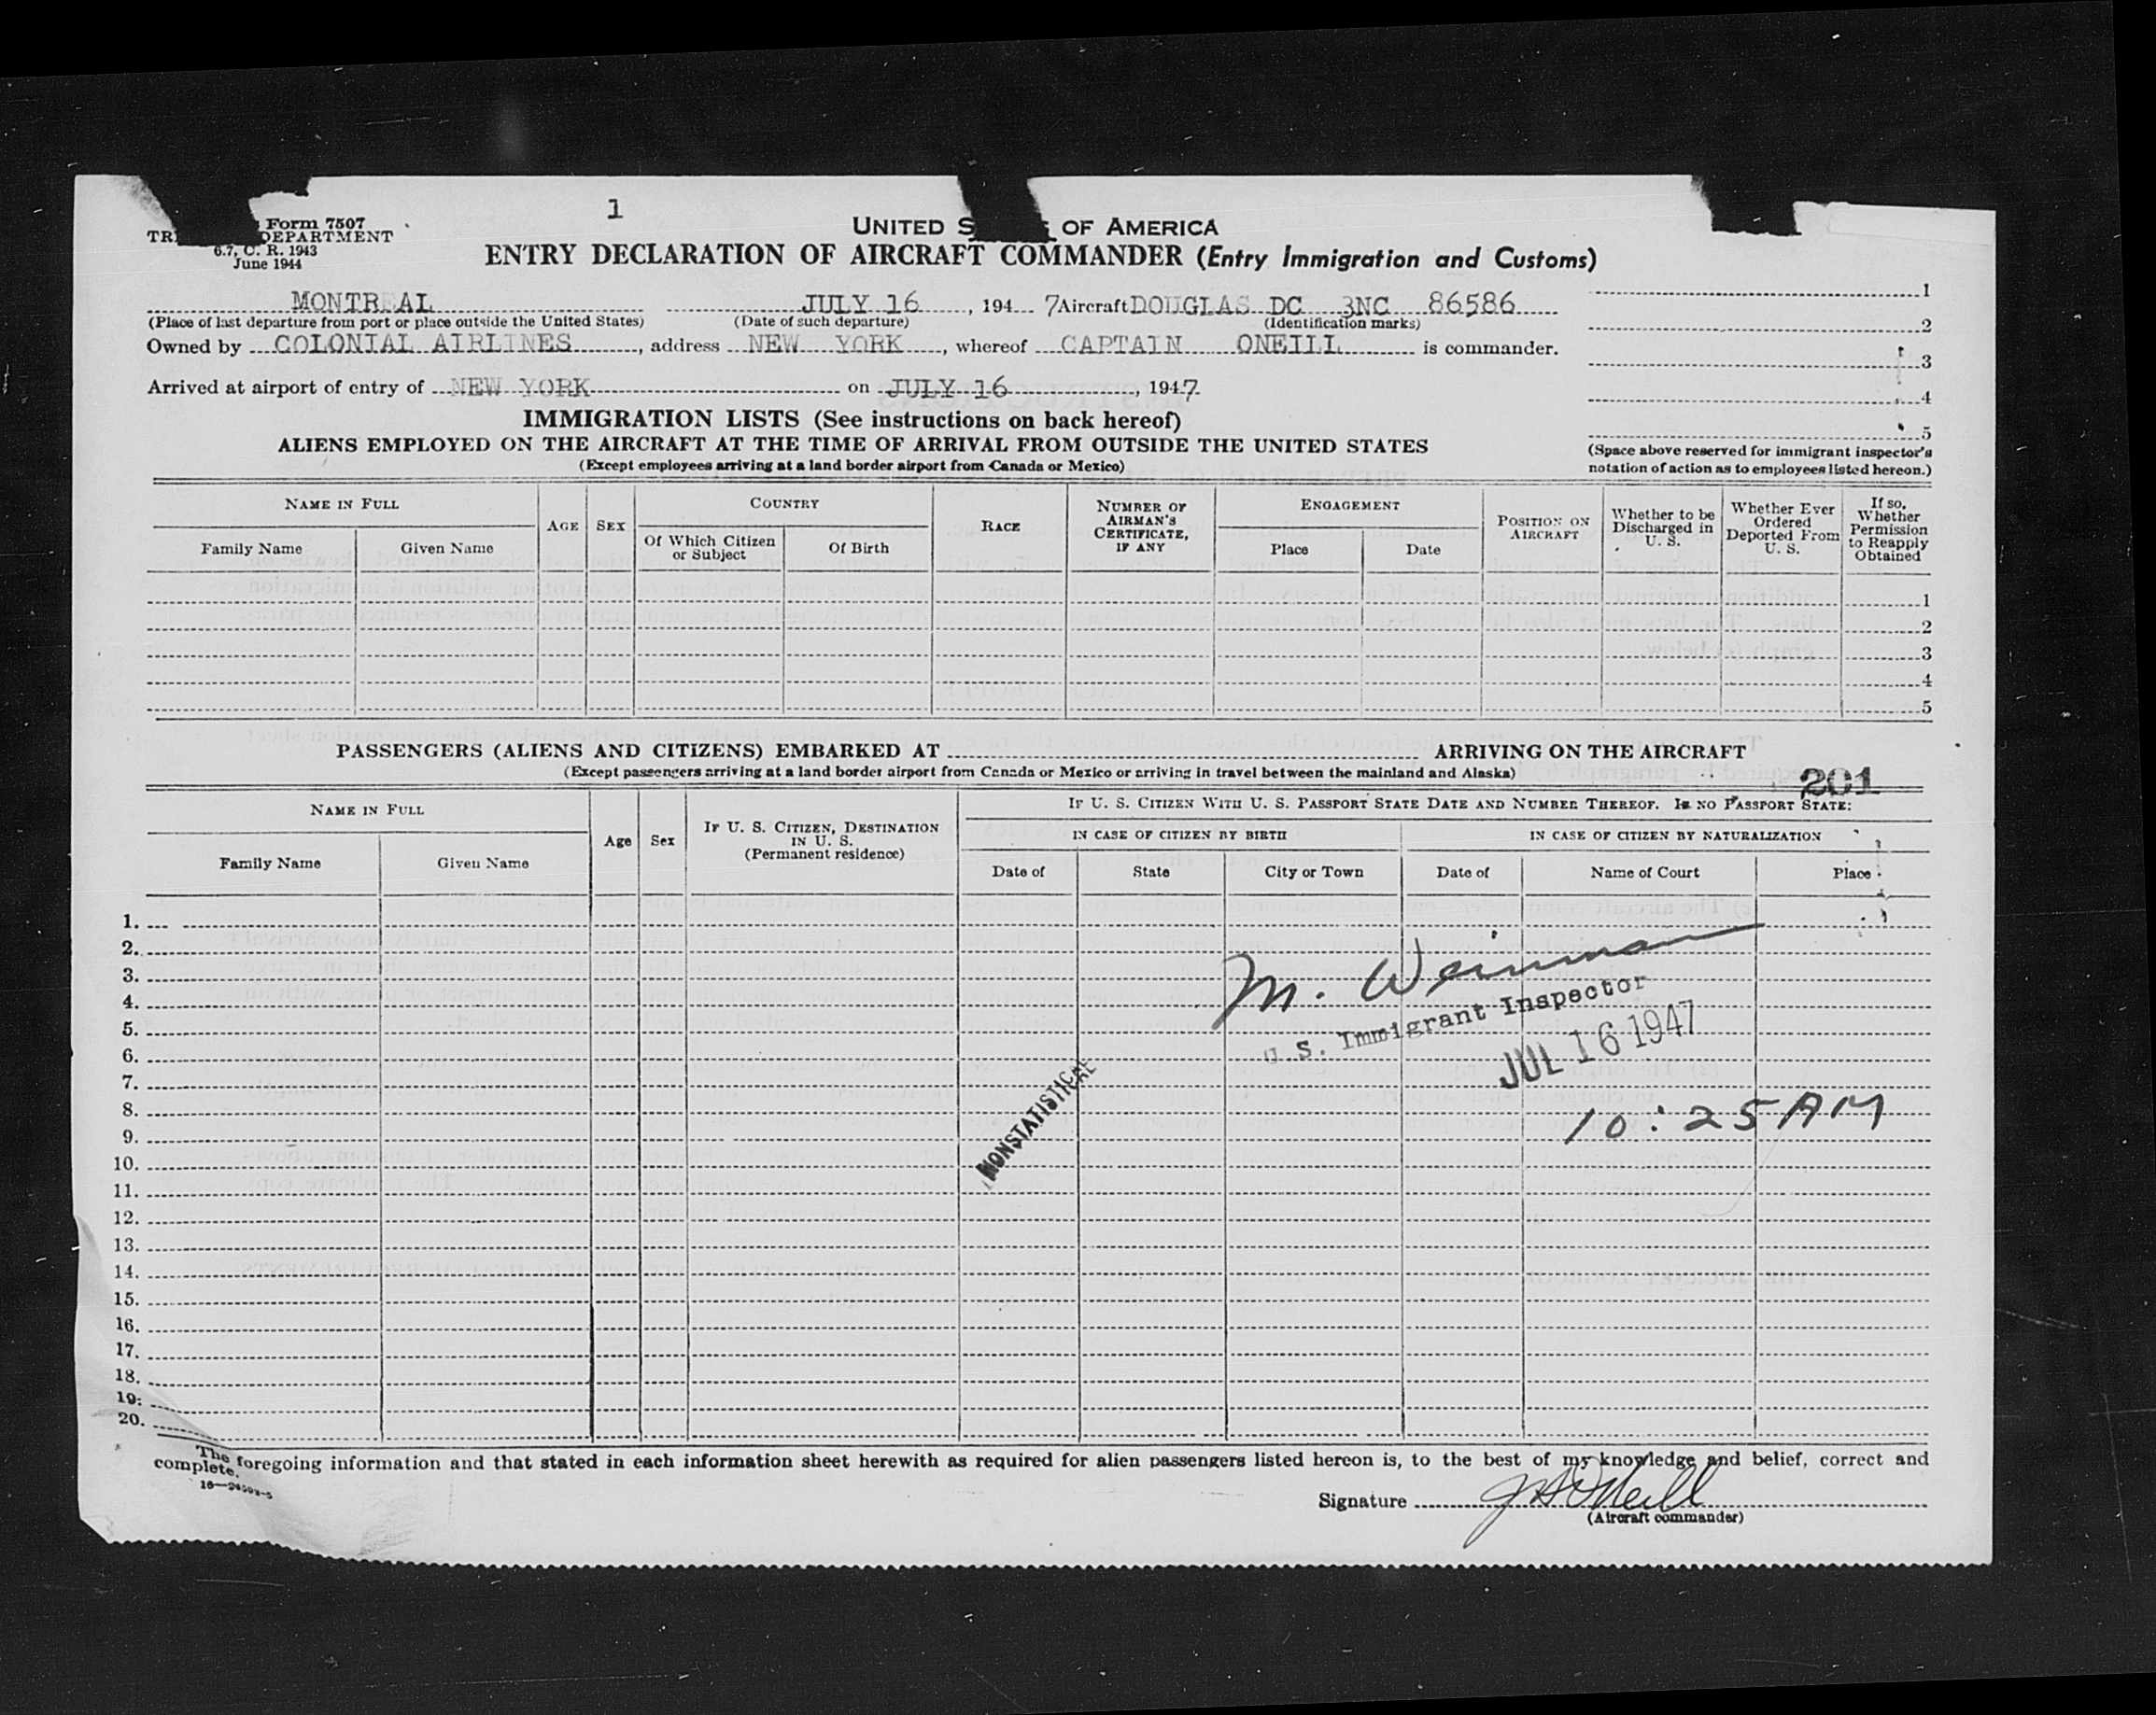 1
Form 7507
DEPARTMENT
6.7, C. R. 1943
June 1944
UNITED OF AMERICA
ENTRY DECLARATION OF AIRCRAFT COMMANDER (Entry Immigration and Customs)
MONTREAL JULY 16, 1947 Aircraft DOUGLAS DC 3NC 86586
(Place of last departure from port or place outside the United States) (Date of such departure) (Identification marks)
Owned by COLONIAL AIRLINES, address NEW YORK, whereof CAPTAIN ONEILL is commander.
Arrived at airport of entry of NEW YORK on JULY 16, 1947
1
2
3
4
5
(Space above reserved for immigrant inspector's
notation of action as to employees listed hereon.)
IMMIGRATION LISTS (See instructions on back hereof)
ALIENS EMPLOYED ON THE AIRCRAFT AT THE TIME OF ARRIVAL FROM OUTSIDE THE UNITED STATES
(Except employees arriving at a land border airport from Canada or Mexico)
NAME IN FULL
Family Name
Given Name
AGE
SEX
COUNTRY
Of Which Citizen
or Subject
Of Birth
RACE
NUMBER OF
AIRMAN'S
CERTIFICATE,
IF ANY
ENGAGEMENT
Place
Date
POSITION ON
AIRCRAFT
Whether to be
Discharged in
U. S.
Whether Ever
Ordered
Deported From
U. S.
If so,
Whether
Permission
to Reapply
Obtained
1
2
3
4
5
PASSENGERS (ALIENS AND CITIZENS) EMBARKED AT ARRIVING ON THE AIRCRAFT
(Except passengers arriving at a land border airport from Canada or Mexico or arriving in travel between the mainland and Alaska)
201
NAME IN FULL
Family Name
Given Name
Age
Sex
IF U. S. CITIZEN, DESTINATION
IN U. S.
(Permanent residence)
IF U. S. CITIZEN WITH U. S. PASSPORT STATE DATE AND NUMBER THEREOF. IF NO PASSPORT STATE:
IN CASE OF CITIZEN BY BIRTH
IN CASE OF CITIZEN BY NATURALIZATION
Date of
State
City or Town
Date of
Name of Court
Place
1.
2.
3.
4.
5.
6.
7.
8.
9.
10.
11.
12.
13.
14.
15.
16.
17.
18.
19.
20.
M. Weinman
U.S. Immigrant Inspector
JUL 16 1947
10:25 AM
NONSTATISTICAL
The foregoing information and that stated in each information sheet herewith as required for alien passengers listed hereon is, to the best of my knowledge and belief, correct and
complete.
Signature J A O'Neill
(Aircraft commander)